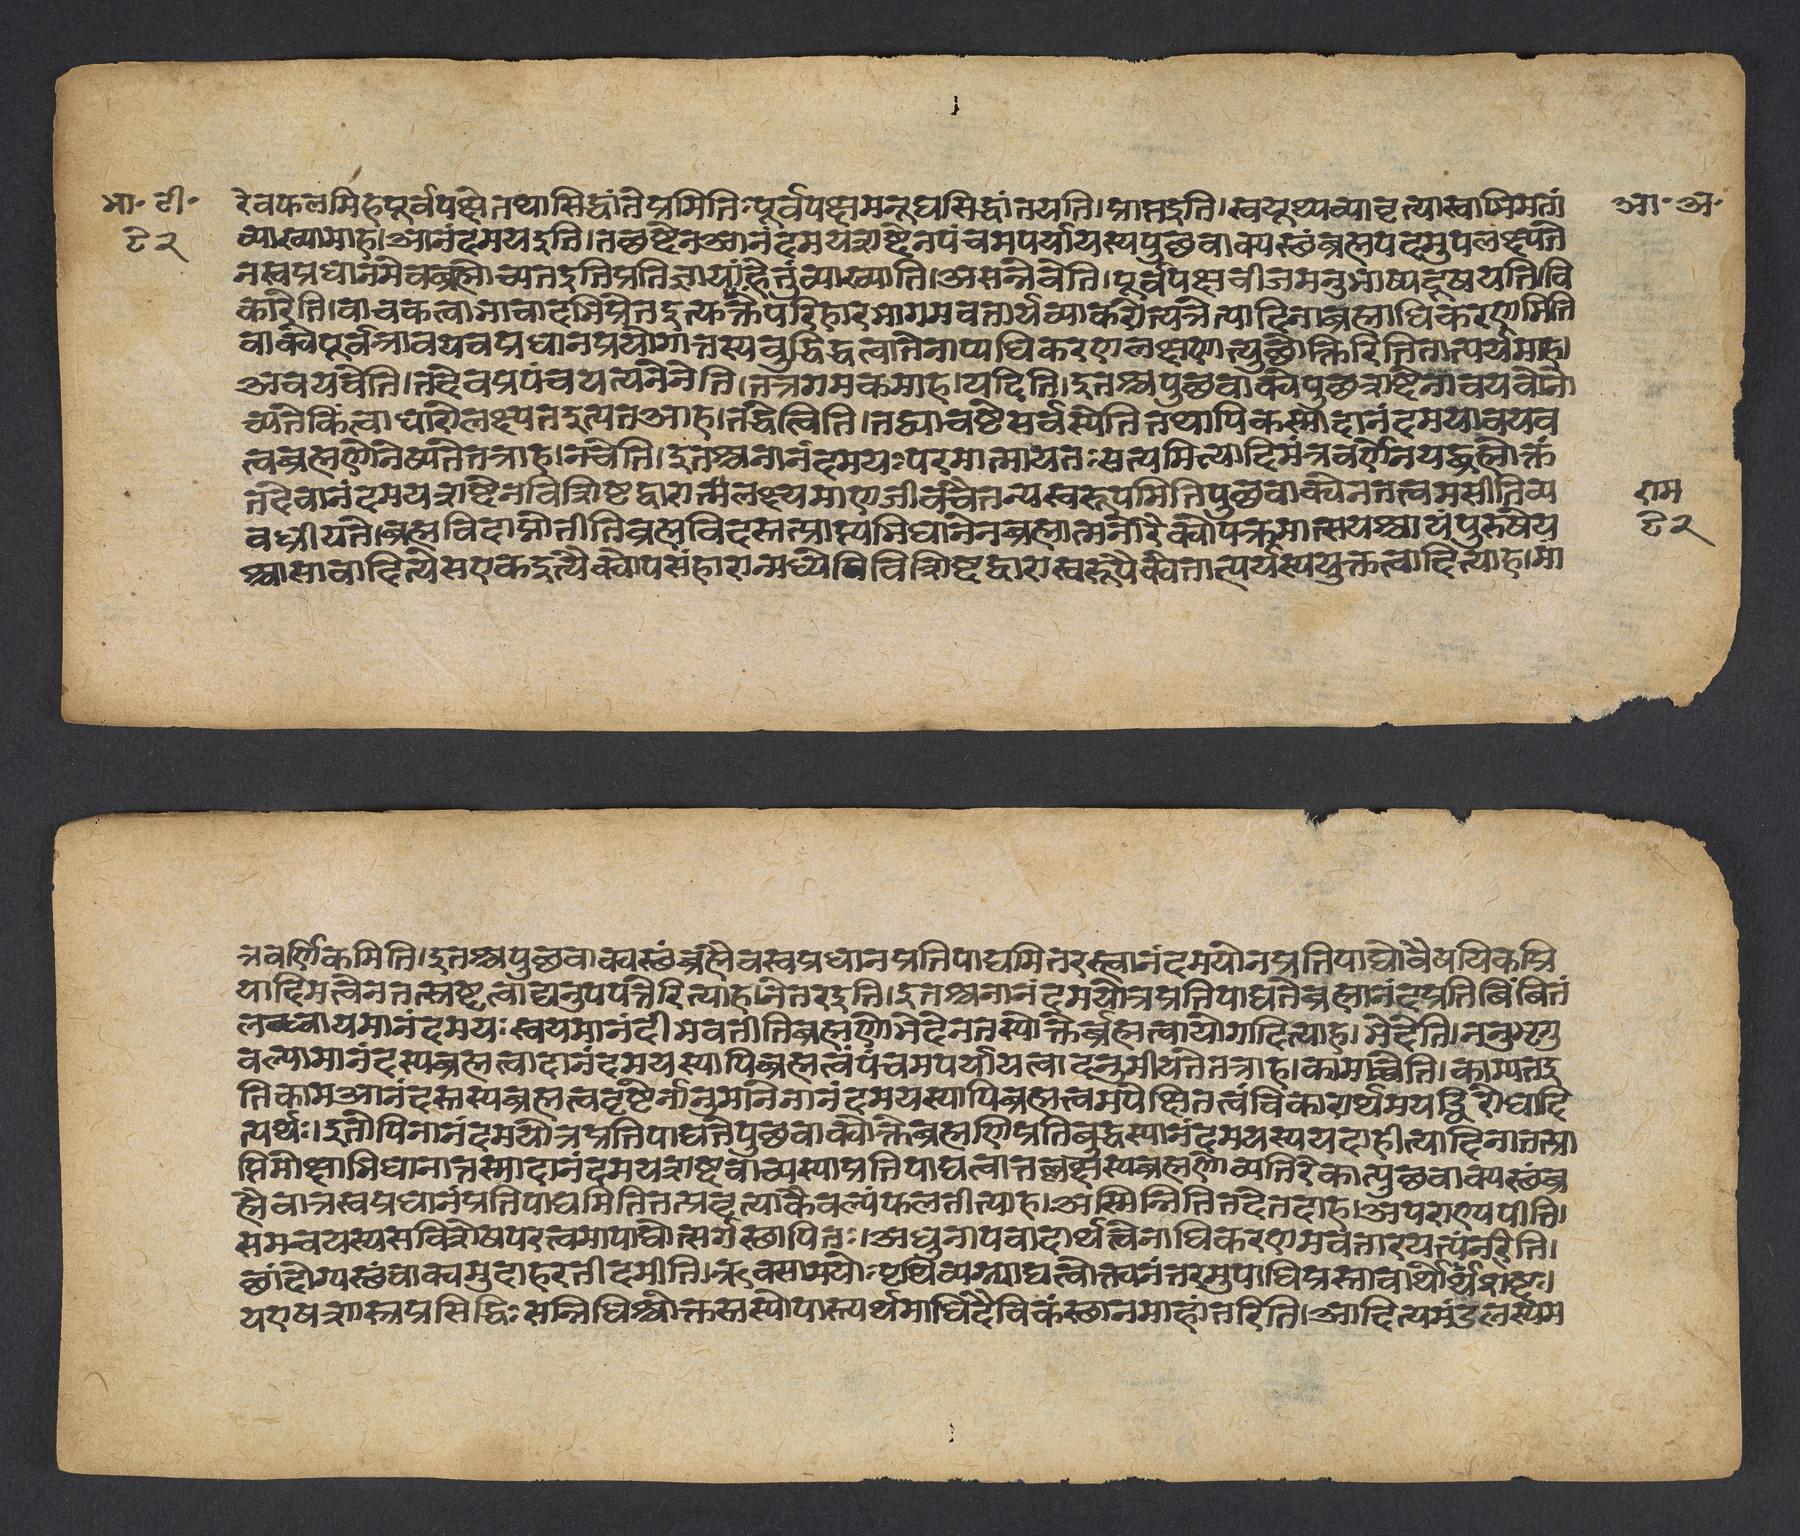 भा॰ टी॰
९२
आ॰ अ॰
रेवफलमिहपूर्वपक्षेतथासिद्धांतेप्रमितिःपूर्वपक्षमनूद्यसिद्धांतयति।प्राप्तइति।स्वयूथ्यव्यावृत्यास्वाभिमतां
व्याख्यामाह।आनंदमयइति।तछब्देनआनंदमयशब्देनपंचमपर्यायस्यपुछवाक्यस्छंब्रह्मपदमुपलक्ष्यते
नस्वप्रधानमेवब्रह्मोच्यतइतिप्रतिज्ञायांहेतुंव्याख्याति।असन्नेवेति।पूर्वपक्षबीजमनुभाष्यदूषयति।वि
कारेति।वाचकत्वाभावादभिप्रेतइत्युक्तंपरिहारभागमवतार्यव्याकरोत्यत्रेत्यादिनाब्रह्माधिकरणमिति
वाक्येपूर्वत्रावयवप्रधानप्रयोगात्तस्यबुद्धिद्वत्वात्तेनाप्यधिकरणलक्षणात्पुछोक्तिरितितात्पर्यमाह।
अवयवेति।तदेवप्रपंचयत्यनेनेति।तत्रगमकमाह।यदिति।इतश्चपुछवाक्येपुछशब्देनावयवोनो
च्यतेकिंत्वाधारोलक्ष्यतइत्यतआह।तद्वेत्विति।तद्व्याचष्टेसर्वस्येतितथापिकस्मादानंदमयावयव
त्वब्रह्मणोनेष्यतेतत्राह।नचेति।इतश्चनानंदमयःपरमात्मायतःसत्यमित्यादिमंत्रवर्णेनयद्ब्रह्मोक्तं
तदेवानंदमयशब्देनविशिष्टद्वारात्मंलक्ष्यमाणजीवंचैतन्यस्वरूपमितिपुछवाक्येनतत्वमसीतिव्य
वध्रीयते।ब्रह्मविदाप्नोतीतिब्रह्मविदस्तत्प्राप्त्यभिधानेनब्रह्मात्मनोरैक्योपक्रमात्सयश्चायंपुरुषेय
श्चासावादित्येसएकइत्यैक्योपसंहारान्मध्येपिविशिष्टद्वारास्वरूपैक्येतात्पर्यस्ययुक्तत्वादित्याह।मा
राम
९२
त्रवर्णिकमिति।इतश्चपुछवाक्यस्छंब्रह्मैवस्वप्रधानप्रतिपाद्यमितरस्त्वानंदमयोनप्रतिपाद्योवैषयिकप्रि
यादिमत्वेनतत्स्रष्टृत्वाद्यनुपपत्तेरित्याह।नेतरइति।इतश्चनानंदमयोत्रप्रतिपाद्यतेब्रह्मानंदप्रतिबिंबितं
लब्ध्वायमानंदमयःस्वयमानंदीभवतीतिब्रह्मणोभेदेनतस्योक्तेर्ब्रह्मत्वायोगादित्याह।भेदेति।ननुभृगु
वल्यामानंदस्यब्रह्मत्वादानंदमयस्यापिब्रह्मत्वंपंचमपर्यायत्वादनुमीयतेतत्राह।कामाच्चेति।काम्यतइ
तिकामआनंदस्तस्यब्रह्मत्वदृष्टेर्नानुमानेनानंदमयस्यापिब्रह्मत्वमपेक्षितत्वंविकारार्थमयड्विरोधादि
त्यर्थः।इतोपिनानंदमयोत्रप्रतिपाद्यतेपुछवाक्योक्तेब्रह्मणिप्रतिबुद्धस्यानंदमयस्ययदाहीत्यादिनातत्प्रा
प्तिमोक्षाभिधानात्तस्मादानंदमयशब्दवाच्यस्याप्रतिपाद्यत्वात्तल्लक्ष्यस्यब्रह्मणोव्यतिरेकात्पुछवाक्यस्छंब्र
ह्मैवात्रस्वप्रधानंप्रतिपाद्यमितितत्प्रवृत्यांकैवल्यंफलतीत्याह।अस्मिन्नितितदेतदाह।अपराण्यपीति।
समन्वयस्यसविशेषपरत्वमापाद्योत्सर्गस्छापितः।अधुनापवादार्थत्वेनाधिकरणमवतारयत्यंतरिति।
छांदोग्यस्छंवाक्यमुदाहरतीदमीति।ऋक्सामयोःपृथिव्यग्न्याद्यत्वोक्त्यनंतरमुपाधिप्रस्तावार्थोर्थशब्दः।
यएषशास्त्रप्रसिद्धिःसन्निधिश्चोक्तस्तस्योपास्त्यर्थमाधिदैविकंस्छानमाहांतरिति।आदित्यमंडलस्यैम